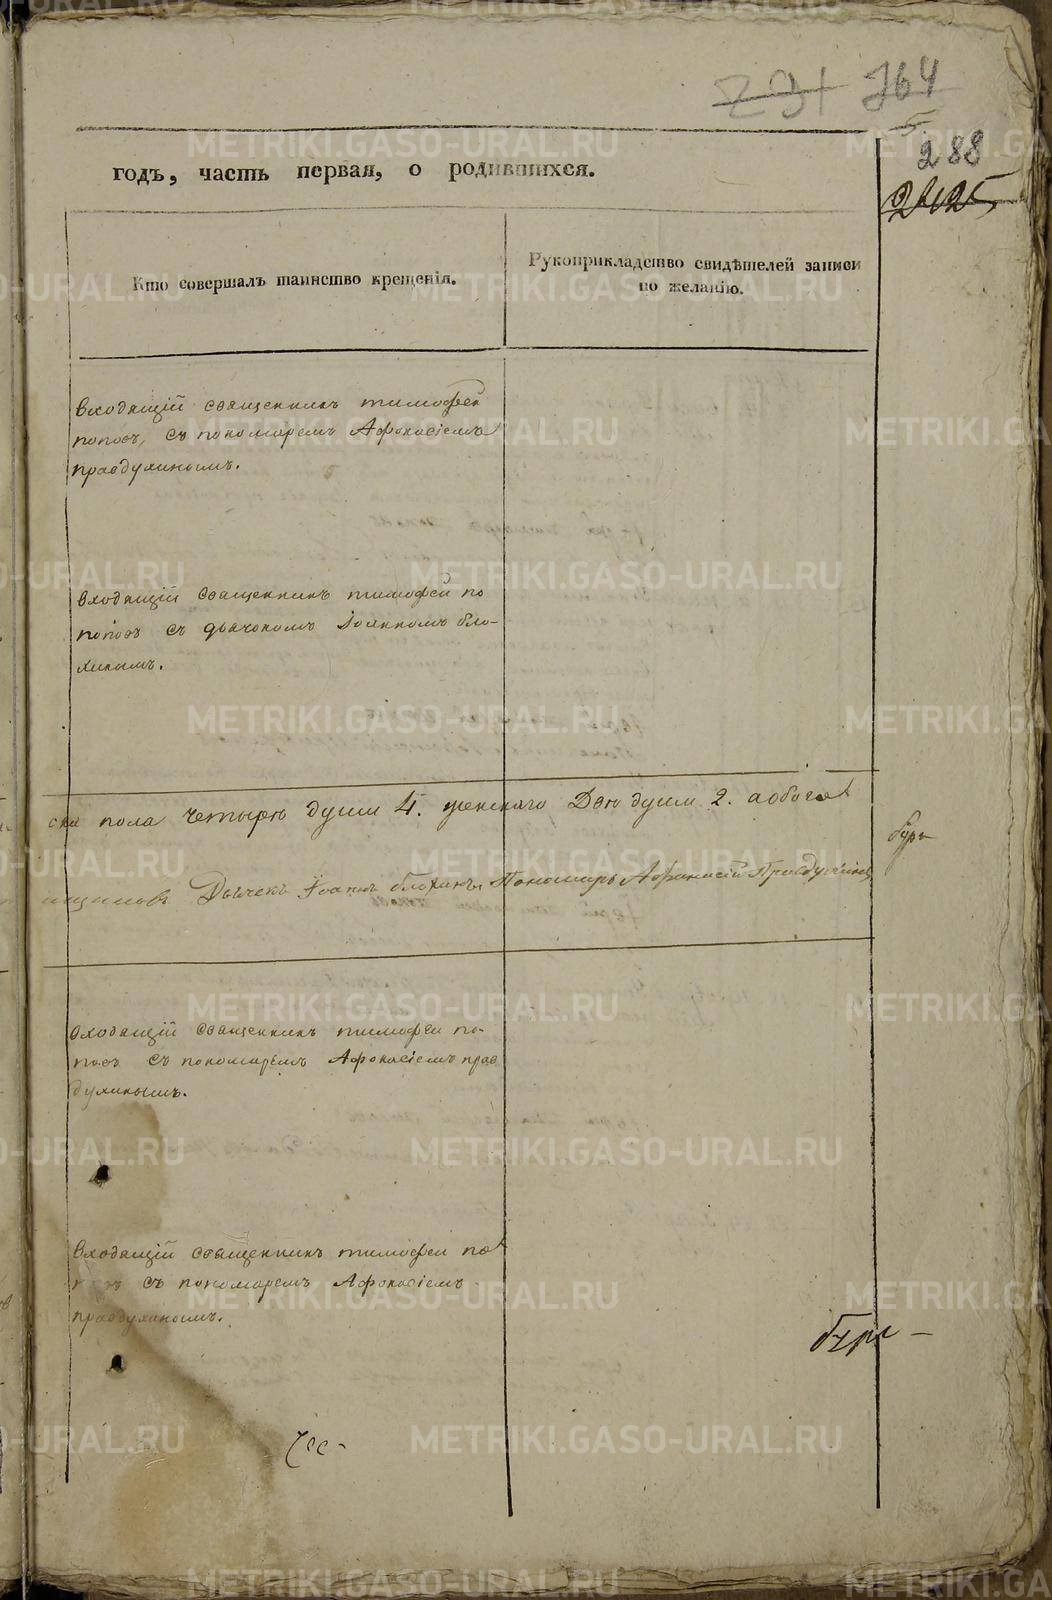 231 364
288
годъ, часть первая, о родившихся.
Кто совершалъ таинство крещенія.
Рукоприкладство свидѣтелей записи
по желанію.
входящій священникъ тимофей
поповъ, съ пономаремъ Афонасіемъ
правдухинымъ.
входящій священникъ тимофей по
поповъ съ дьячкомъ Іоанномъ бло-
хинымъ.
ска пола четыре души 4. женскаго Две души 2. а обоего
Дьячекъ Іоаннъ блохинъ Пономарь Афанасій Правдухинъ
входящій священникъ тимофеи по-
повъ съ пономаремъ Афонасіемъ прав
духинымъ.
входящій священникъ тимофеи по
съ пономаремъ Афонасіемъ
правдухинымъ.
METRIKI.GASO-URAL.RU